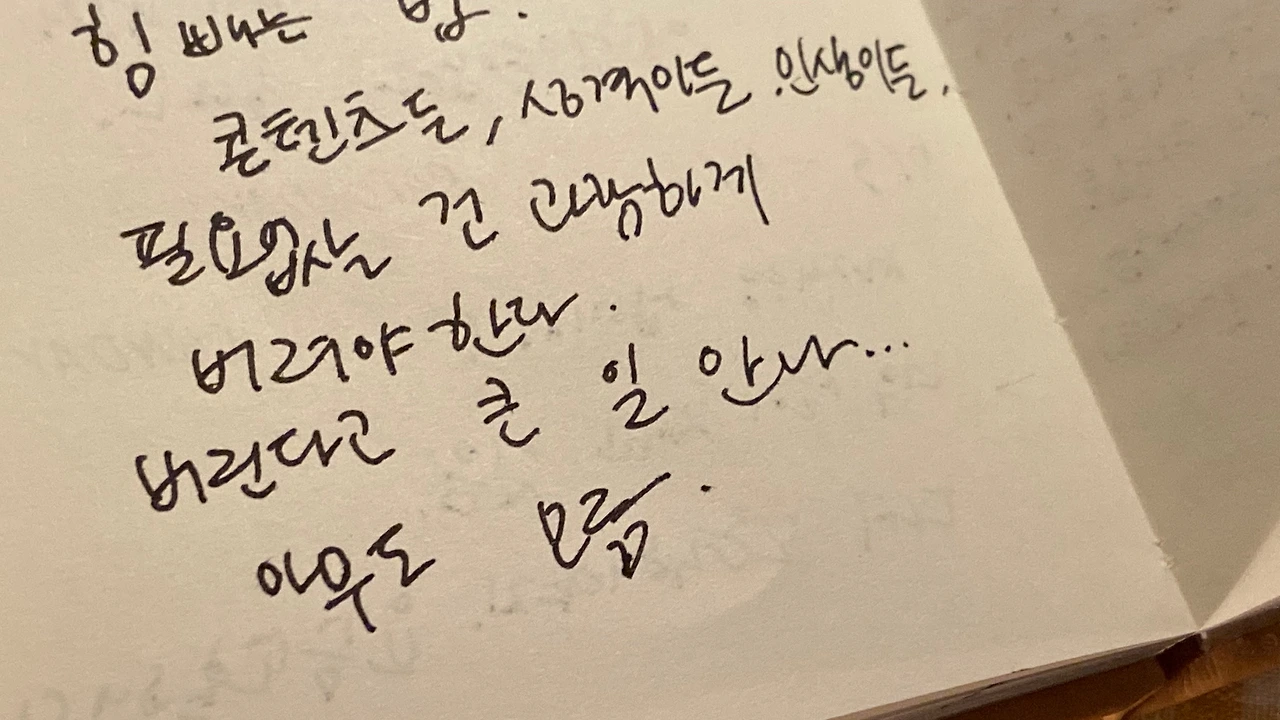 힘 빼는 법.
콘텐츠든, 성격이든. 인생이든,
필요없는 건 과감하게
버려야 한다.
버린다고 큰 일 안나...
아무도 모름.